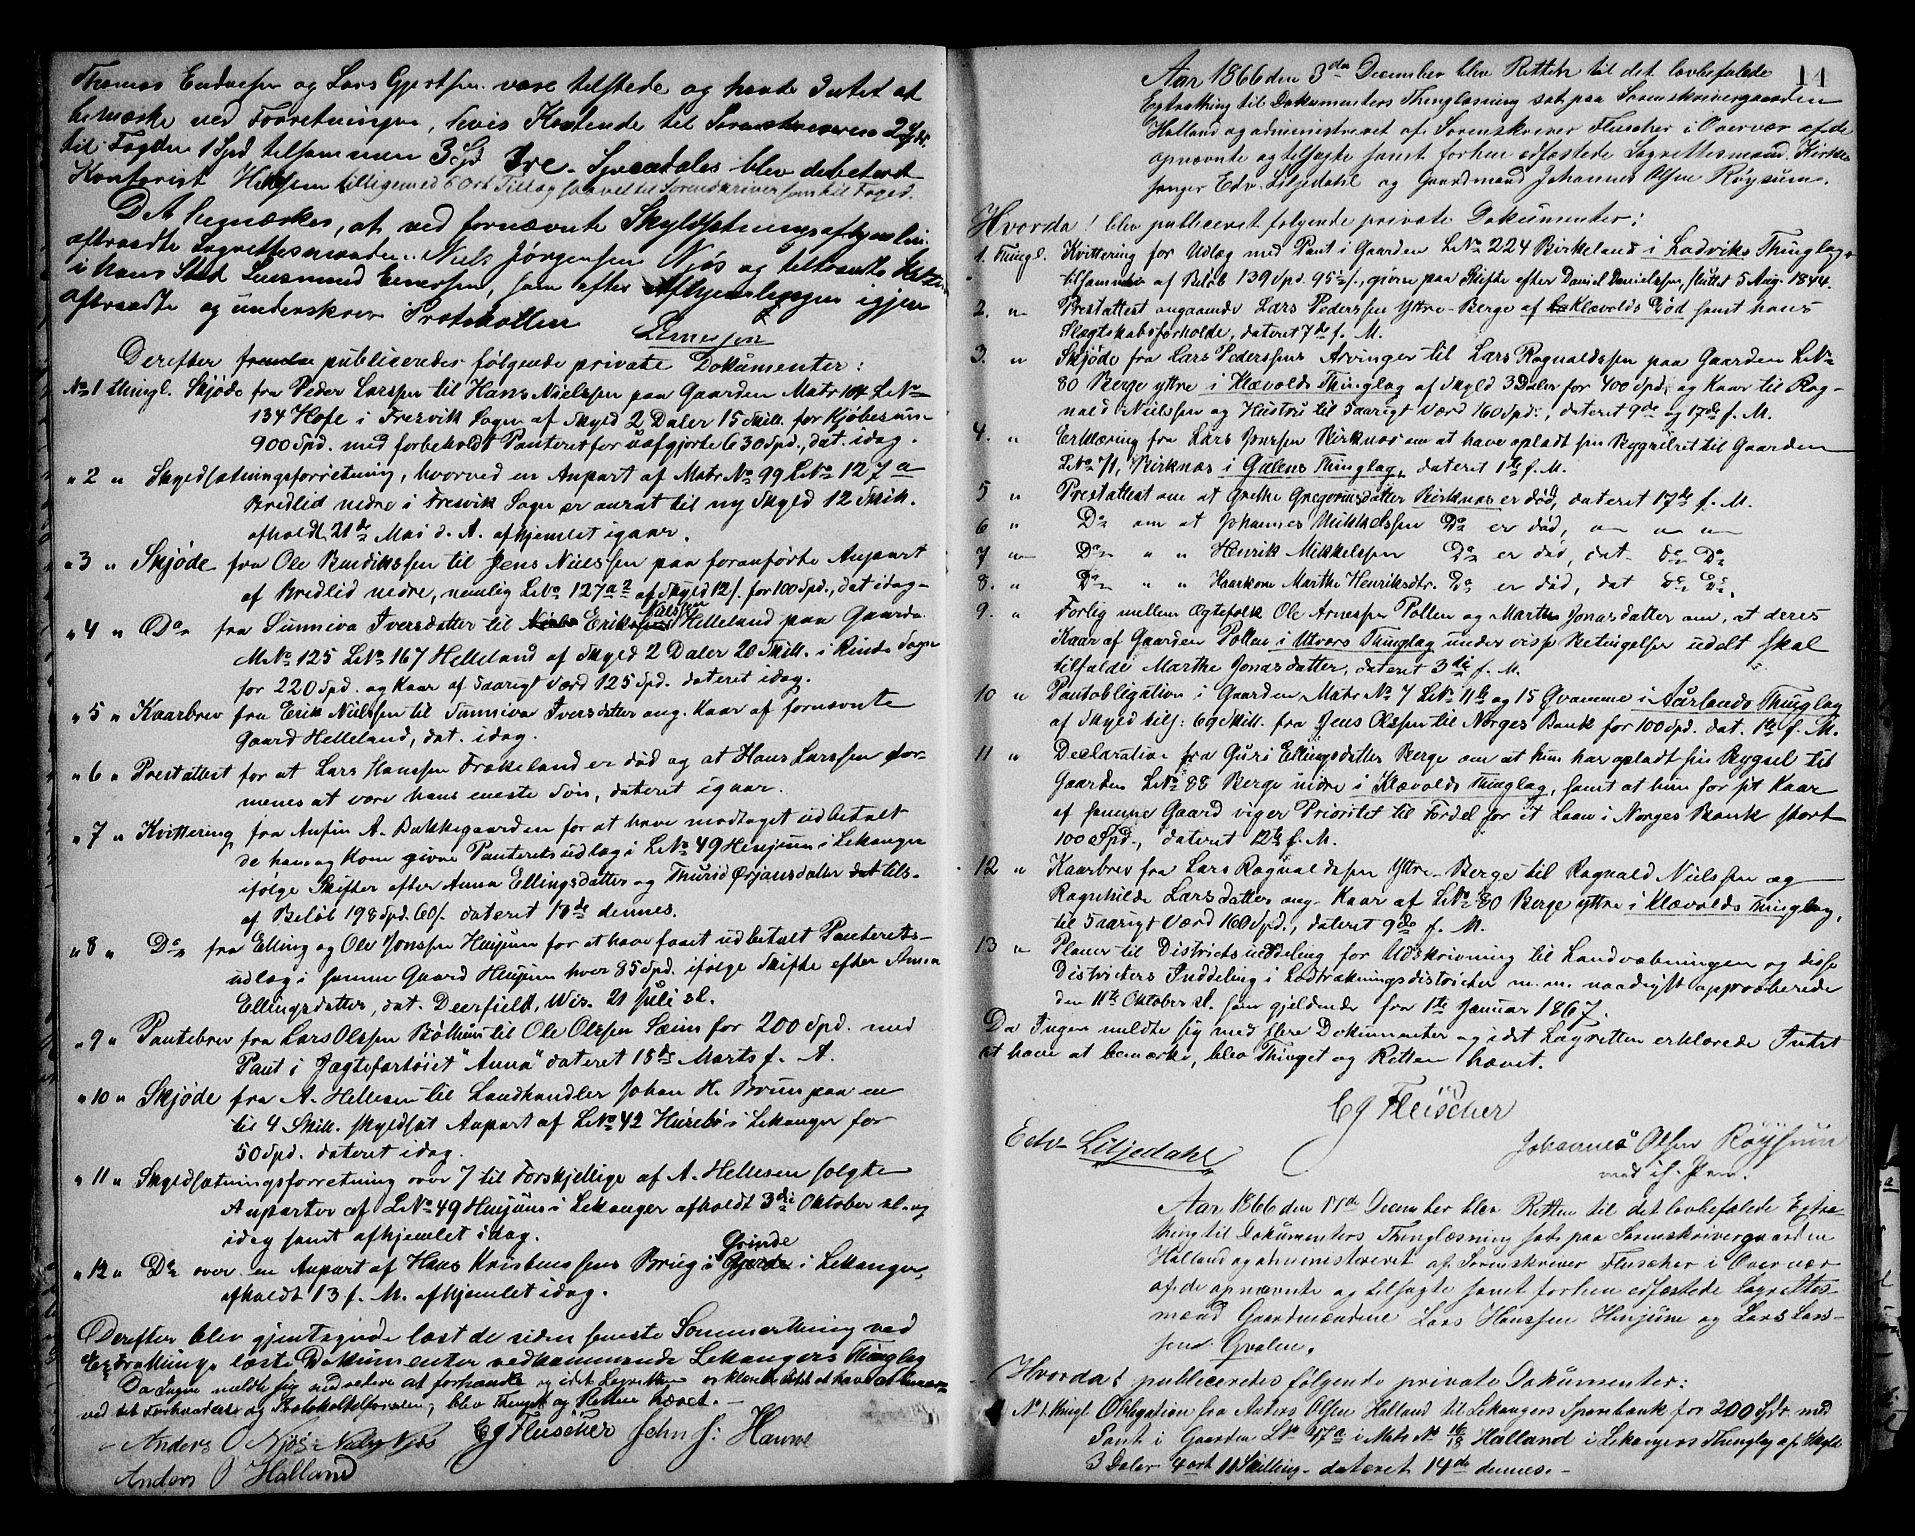 Thomas Endresen og Lars Gjertsen vare tilstede og havde Intet at
bemærke ved Forretningen, hvis Kostende til Sorenskriveren 2 Spd.
til Fogden 1 Spd tilsammen 3 Spd Tre Speciedaler blev debeteret
Kontorist tilligemed 8 Ort Tillæg saavel til Sorenskriver som til Foged.
Det bemærkes, at ved fornævnte Skyldsætnings afhjemling
aftraadte Lagrettesmanden Niels Jørgensen Njøs og tiltraadte
i hans Sted Einersen, som efter Afhjemlingen igjen
aftraadte og underskrev Protokollen
Derefter publiceredes følgende private Dokumenter:
No 1 Thingl. Skjøde fra Peder Larssen til Hans Nielssen paa Gaarden Matr 104 LNo
134 Hofe i Fresvik Sogn af Skyld 2 Daler 15 Skill. for Kjøbesum
900 Spd. med forbeholdt Panteret for uafgjorte 630 Spd., dat. idag.
" 2 " Skyldsætningsforretning, hvorved en Anpart af Matr No 99 LNo 127 a
Bredlid nedre i Fresvik Sogn er ansat til ny Skyld 12 Skill.
afholdt 21de Mai d. A. afhjemlet igaar.
" 3 " Skjøde fra Ole Bendikssen til Jens Nielssen paa foranførte Anpart
af Bredlid nedre, nemlig LNo 127 a 2 af Skyld 12 /. for 100 Spd., dat idag
" 4 " Do fra Sunniva Iversdatter til Erik Nielssen Helleland paa Gaarden
MNo 125 LNo 167 Helleland af Skyld 2 Daler 20 Skill. i Rinde Sogn
for 220 Spd. og Kaar af 5aarigt Værd 125 Spd. dateret idag.
" 5 " Kaarbrev fra Erik Nielssen til Sunniva Iversdatter ang. Kaar af fornævnte
Gaard Helleland, dat. idag.
" 6 " Prestattest for at Lars Hanssen Frøkeland er død og at Hans Larssen for-
menes at være hans eneste Søn, dateret igaar.
" 7 " Kvittering fra Anfin A. Bakkegaarden for at have modtaget udbetalt
de ham og Kone givne Panteretsudlæg i LNo 49 Henjum i Lekanger
ifølge Skifter efter Anna Ellingsdatter og Thurid Ørjansdatter tils.
af Beløb 198 Spd. 60/. dateret 10de dennes.
" 8 " Do fra Elling og Ole Jonssen Henjum for at have faaet udbetalt Panterets-
udlæg i samme Gaard Henjum hver 85 Spd. ifølge Skifte efter Anna
Ellingsdatter, dat. Deerfield, Wis. 21 Juli sl.
" 9 " Pantebrev fra Lars Olssen Bøthun til Ole Olssen Sæim for 200 Spd. med
Pant i Jægtefartøiet "Anna" dateret 15de Marts f. A.
" 10 " Skjøde fra A. Hellesen til Landhandler Johan H. Brun paa en
til 4 Skill. skyldsat Anpart af LNo 42 Hurebø i Lekanger for
50 Spd. dateret idag.
" 11 " Skyldsætningsforretning over 7 til Forskjellige af A. Hellesen solgte
Anparter af LNo 49 Henjum i Lekanger afholdt 3die Oktober sl. og
idag samt afhjemlet idag.
" 12 " Do over en Anpart af Hans Kristenssens Brug i Grinde i Lekanger,
afholdt 13 f. M. afhjemlet idag.
Derefter blev gjentagende læst de siden seneste Sommerthing ved
Extrathinge læste Dokumenter vedkommende Lekangers Thinglag
Da Ingen meldte sig videre at forhandle og idet Lagretten erklærede Intet at have at bemærke
ved det Forhandlede og Protokolførelsen, blev Thinget og Retten hævet.
Anders O Njøs Cg Fleischer John J: Hamre
Anders O Halland
14
Aar 1866 den 3die December blev Retten til det lovbefalede
Extrathing til Dokumenters Thinglæsning sat paa Sorenskrivergaarden
Halland og administreret af Sorenskriver Fleischer i Overvær af de
opnævnte og tilsagte samt forhen edfæstede Lagrettesmænd Kirke-
sanger Edv. Liljedahl og Gaardmand Johannes Olsen Røysum.
Hvorda! blev publiceret følgende private Dokumenter:
1. Thingl. Kvittering for Udlæg med Pant i Gaarden LNo 224 Birkeland i Ladviks Thinglag,
tilsammen af Beløb 139 Spd. 95 1/2 /., givne paa Skifte efter Daniel Danielssen, sluttet 5 Aug. 1844.
2. " Prestattest angaaende Lars Pederssen Yttre-Berge af Klævolds Død samt hans
Slægtskabsforholde, dateret 7de f. M.
3. " Skjøde fra Lars Pederssens Arvinger til Lars Rognaldssen paa Gaarden LNo
80 Berge yttre i Klævolds Thinglag af Skyld 3 Daler for 400 Spd. og Kaar til Rog-
nald Nielssen og Hustru til 5aarigt Værd 160 Spd:, dateret 9de og 17de f. M.
4. " Erklæring fra Lars Jonssen Birknæs om at have opladt sin Bygselret til Gaarden
LNo 71, Birknæs i Gulens Thinglag, dateret 1ste f. M.
5 " Prestattest om at Grethe Gregoriusdatter Birknæs er død, dateret 17de f. M.
6 " Do om at Johannes Mikkelssen Do er død, " " "
7 " Do " " Henrik Mikkelssen Do er død, dat. do Do
8. " Do " " Kaarkone Marthe Henriksdtr. Do er død, dat do Do.
9. " Forlig mellem Ægtefolk Ole Arnessen Pollen og Marthe Jonasdatter om, at deres
Kaar af Gaarden Pollen i Utvors Thinglag under visse Betingelser udelt skal
tilfalde Marthe Jonasdatter, dateret 3die f. M.
10 " Pantobligation i Gaarden Matr No 7 LNo 11b og 15 Gvamme i Aårlands Thinglag
af Skyld tils: 69 Skill. fra Jens Olssen til Norges Bank for 100 Spd. dat. 1ste f. M.
11 " Declaration fra Guri Ellingsdatter Berge om at hun har opladt sin Bygsel til
Gaarden LNo 88 Berge nidre i Klævolds Thinglag, samt at hun for sit Kaar
af samme Gaard viger Prioritet til Fordel for et Laan i Norges Bank stort
100 Spd., dateret 12te f. M.
12 " Kaarbrev fra Lars Rognaldssen Yttre-Berge til Rognald Nielssen og
Ragnhilde Larsdatter ang. Kaar af LNo 80 Berge yttre i Klævolds Thinglag,
til 5aarigt Værd 160 Spd., dateret 9de f. M.
13 " Planer til Districtsinddeling for Udskrivning til Landværbningen og disse
Districters Inddeling i Lodtrækningsdistricter m. m. naadigst approberede
den 11te Oktober sl. som gjældende fra 1ste Januar 1867.
Da Ingen meldte sig med flere Dokumenter og idet Lagretten erklærede Intet
at have at bemærke, blev Thinget og Retten hævet.
Cg Fleischer
Edv- Liljedahl Johannes Olsen Røysum
med i. P.
Aar 1866 den 17de December blev Retten til det lovbefalede Extra-
thing til Dokumenters Thinglæsning sat paa Sorenskrivergaarden
Halland og administreret af Sorenskriver Fleischer i Overvær
af de opnævnte og tilsagte samt forhen edfæstede Lagrettes-
mænd Gaardmændene Lars Hanssen Henjum og Lars Lars-
sen Qvalen.
Hvorda! publiceredes følgende private Dokumenter:
No 1. Thingl Obligation fra Anders Olsen Halland til Lekangers Sparebank for 200 Spdr. med
Pant i Gaarden LNo 17a i Matr No 16/18 Halland i Lekangers Thinglag af Skyld
3 Daler 4 ort 11 Skilling - dateret 14de dennes. -